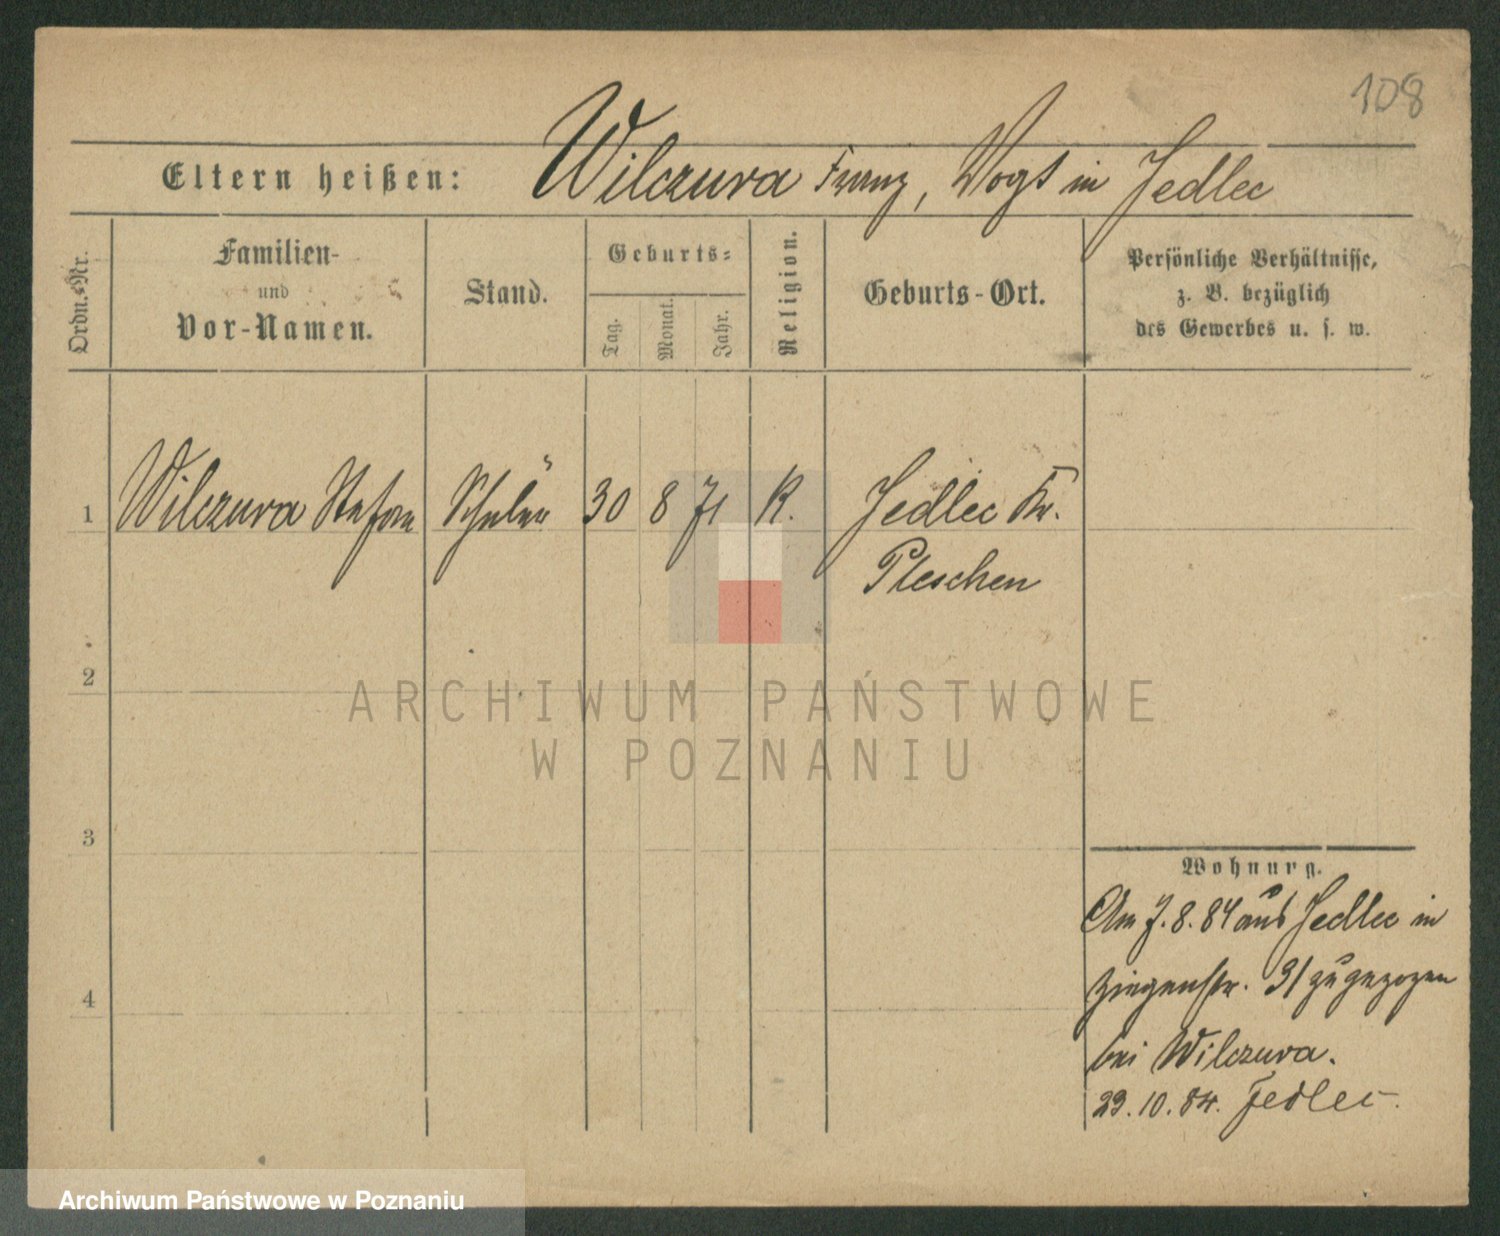 108
Eltern heißen: Wilczura Franz, Vogt in Jedlec
Ordn.-Nr.
Familien-
und
Vor-Namen.
Stand.
Geburts-
Tag.
Monat.
Jahr.
Religion.
Geburts-Ort.
Persönliche Verhältnisse,
z. B. bezüglich
des Gewerbes u. s. w.
1 Wilczura Stefan Schüler 30 8 71 K. Jedlec Kr.
Pleschen
2
ARCHIWUM PAŃSTWOWE
W POZNANIU
3
Wohnung.
Am 7. 8. 84 aus Jedlec in
4
Ziegenstr. 31 zugezogen
bei Wilczura.
29. 10. 84. Jedlec
Archiwum Państwowe w Poznaniu